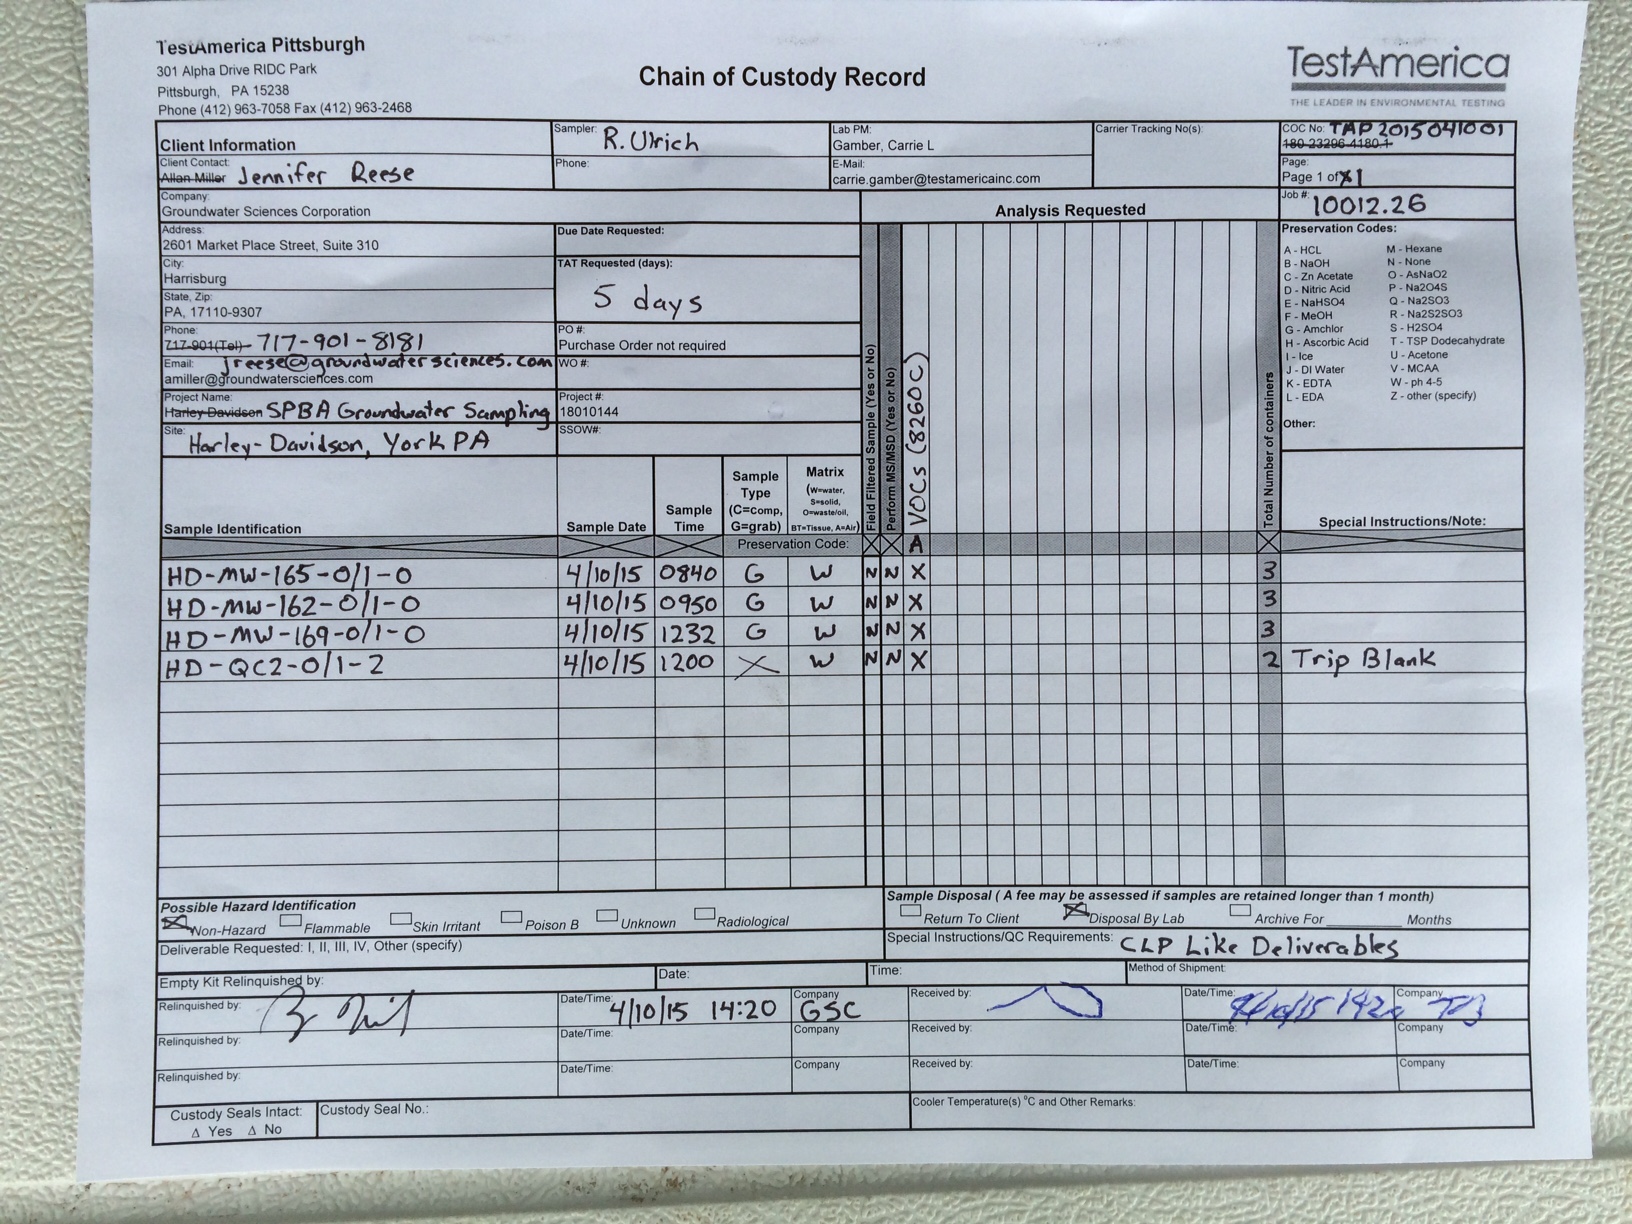 TestAmerica Pittsburgh
301 Alpha Drive RIDC Park
Pittsburgh, PA 15238
Phone (412) 963-7058 Fax (412) 963-2468
Chain of Custody Record
TestAmerica
THE LEADER IN ENVIRONMENTAL TESTING
Client Information
Sampler: R. Ulrich
Lab PM:
Gamber, Carrie L
Carrier Tracking No(s):
COC No: TAP 2015041001
180-23296-4180.1
Client Contact:
Allan Miller Jennifer Reese
Phone:
E-Mail:
carrie.gamber@testamericainc.com
Page:
Page 1 of 1
Company:
Groundwater Sciences Corporation
Analysis Requested
Job #: 10012.26
Address:
2601 Market Place Street, Suite 310
Due Date Requested:
City:
Harrisburg
TAT Requested (days):
5 days
State, Zip:
PA, 17110-9307
Phone:
717-901(Tel) 717-901-8181
PO #:
Purchase Order not required
Email: jreese@groundwatersciences.com
amiller@groundwatersciences.com
WO #:
Project Name:
Harley-Davidson SPBA Groundwater Sampling
Project #:
18010144
Site: Harley-Davidson, York PA
SSOW#:
Field Filtered Sample (Yes or No)
Perform MS/MSD (Yes or No)
VOCs (8260C)
Total Number of containers
Preservation Codes:
A - HCL M - Hexane
B - NaOH N - None
C - Zn Acetate O - AsNaO2
D - Nitric Acid P - Na2O4S
E - NaHSO4 Q - Na2SO3
F - MeOH R - Na2S2SO3
G - Amchlor S - H2SO4
H - Ascorbic Acid T - TSP Dodecahydrate
I - Ice U - Acetone
J - DI Water V - MCAA
K - EDTA W - ph 4-5
L - EDA Z - other (specify)
Other:
Sample Identification
Sample Date
Sample Time
Sample Type (C=comp, G=grab)
Matrix (W=water, S=solid, O=waste/oil, BT=Tissue, A=Air)
Special Instructions/Note:
Preservation Code: X X A X
HD-MW-165-0/1-0 4/10/15 0840 G W N N X 3
HD-MW-162-0/1-0 4/10/15 0950 G W N N X 3
HD-MW-169-0/1-0 4/10/15 1232 G W N N X 3
HD-QC2-0/1-2 4/10/15 1200 X W N N X 2 Trip Blank
Possible Hazard Identification
Non-Hazard Flammable Skin Irritant Poison B Unknown Radiological
Sample Disposal ( A fee may be assessed if samples are retained longer than 1 month)
Return To Client Disposal By Lab Archive For Months
Deliverable Requested: I, II, III, IV, Other (specify)
Special Instructions/QC Requirements: CLP Like Deliverables
Empty Kit Relinquished by:
Date:
Time:
Method of Shipment:
Relinquished by:
Date/Time: 4/10/15 14:20
Company GSC
Received by:
Date/Time:
Company
Relinquished by:
Date/Time:
Company
Received by:
Date/Time:
Company
Relinquished by:
Date/Time:
Company
Received by:
Date/Time:
Company
Custody Seals Intact:
Δ Yes Δ No
Custody Seal No.:
Cooler Temperature(s) °C and Other Remarks: